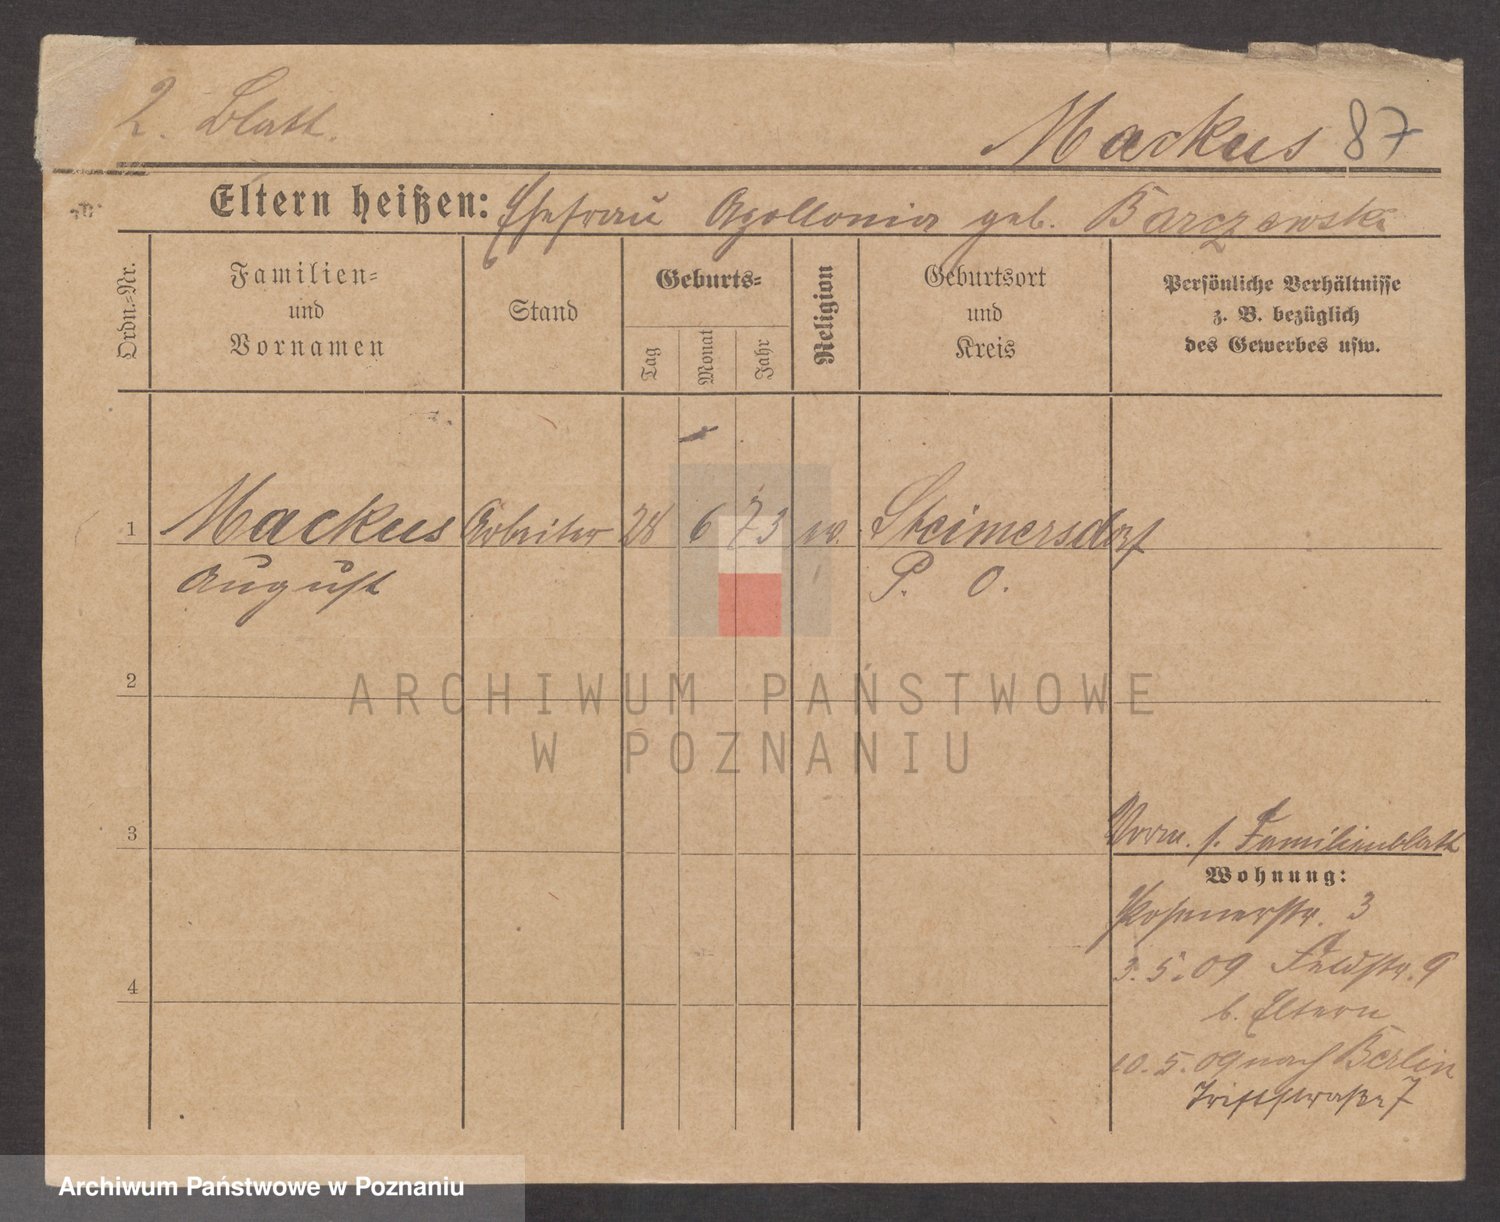 2. Blatt.
Mackus 87
Eltern heißen: Ehefrau Apollonia geb. Barczewski
Ordn.-Nr.
Familien-
und
Vornamen
Stand
Geburts-
Tag
Monat
Jahr
Religion
Geburtsort
und
Kreis
Persönliche Verhältnisse
z. B. bezüglich
des Gewerbes usw.
1 Mackus Arbeiter 28 6 73 ev. Steimersdorf
August P. O.
2
ARCHIWUM PAŃSTWOWE
W POZNANIU
3 Verm. s. Familienblatt
Wohnung:
Posenerstr. 3
3.5.09 Feldstr. 9
4
b. Eltern
10.5.09 nach Berlin
Triftstraße 7
Archiwum Państwowe w Poznaniu